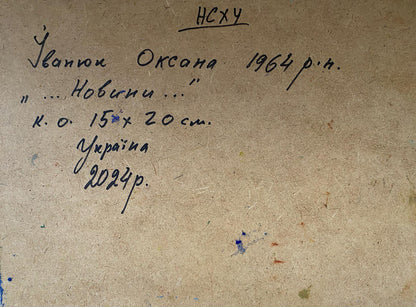 НСХУ
Іванюк Оксана 1964 р.н.
„ ... Новини ..."
к. о. 15 х 20 см.
Україна
2024р.